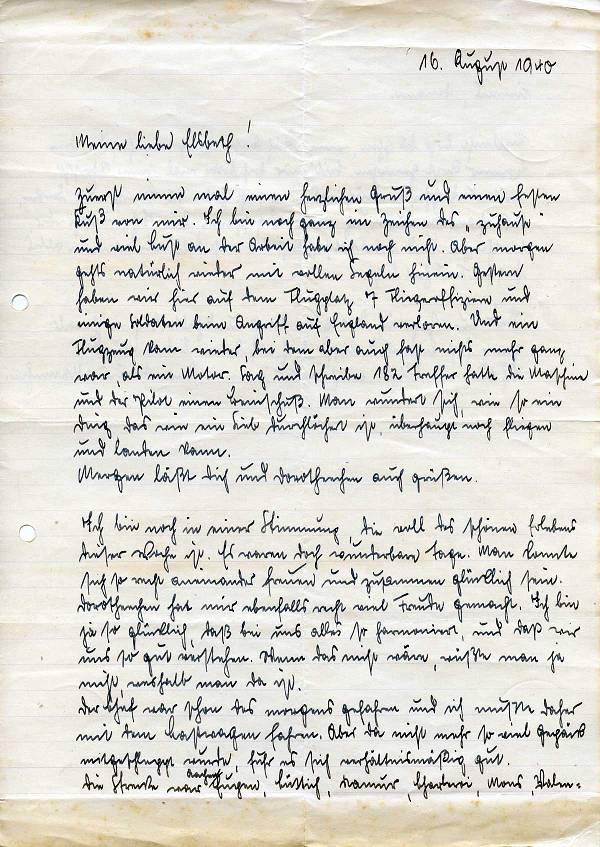 16. August 1940
Meine liebe Elsbeth!
Zuerst nimm mal einen herzlichen Gruß und einen festen
Kuß von mir. Ich bin noch ganz im Zeichen des „zuhause"
und viel Lust an der Arbeit habe ich noch nicht. Aber morgen
gehts natürlich wieder mit vollen Segeln hinein. Gestern
haben wir hier auf dem Flugplatz 7 Fliegeroffiziere und
einige Soldaten beim Angriff auf England verloren. Und ein
Flugzeug kam wieder, bei dem aber auch fast nichts mehr ganz
war, als ein Motor. Sage und schreibe 182 Treffer hatte die Maschine
und der Pilot einen Beinschuß. Man wundert sich, wie so ein
Ding das wie ein Sieb durchlöchert ist, überhaupt noch fliegen
und landen kann.
läßt Dich und Dorotheechen auch grüßen.
Ich bin noch in einer Stimmung, die voll des schönen Erlebens
dieser Woche ist. Es waren doch wunderbare Tage. Man konnte
sich so recht aneinander freuen und zusammen glücklich sein.
Dorotheechen hat mir ebenfalls recht viel Freude gemacht. Ich bin
ja so glücklich, daß bei uns alles so harmoniert, und daß wir
uns so gut verstehen. Wenn das nicht wäre, wüßte man ja
nicht, weshalb man da ist.
Der Chef war schon des morgens gefahren und ich mußte daher
mit dem Lastwagen fahren. Aber da nicht mehr so viel Gepäck
mitgeschleppt wurde, fuhr es sich verhältnismäßig gut.
Aachen
Die Strecke war Eupen, Lüttich, Namur, Charleroi, Mons, Valen-